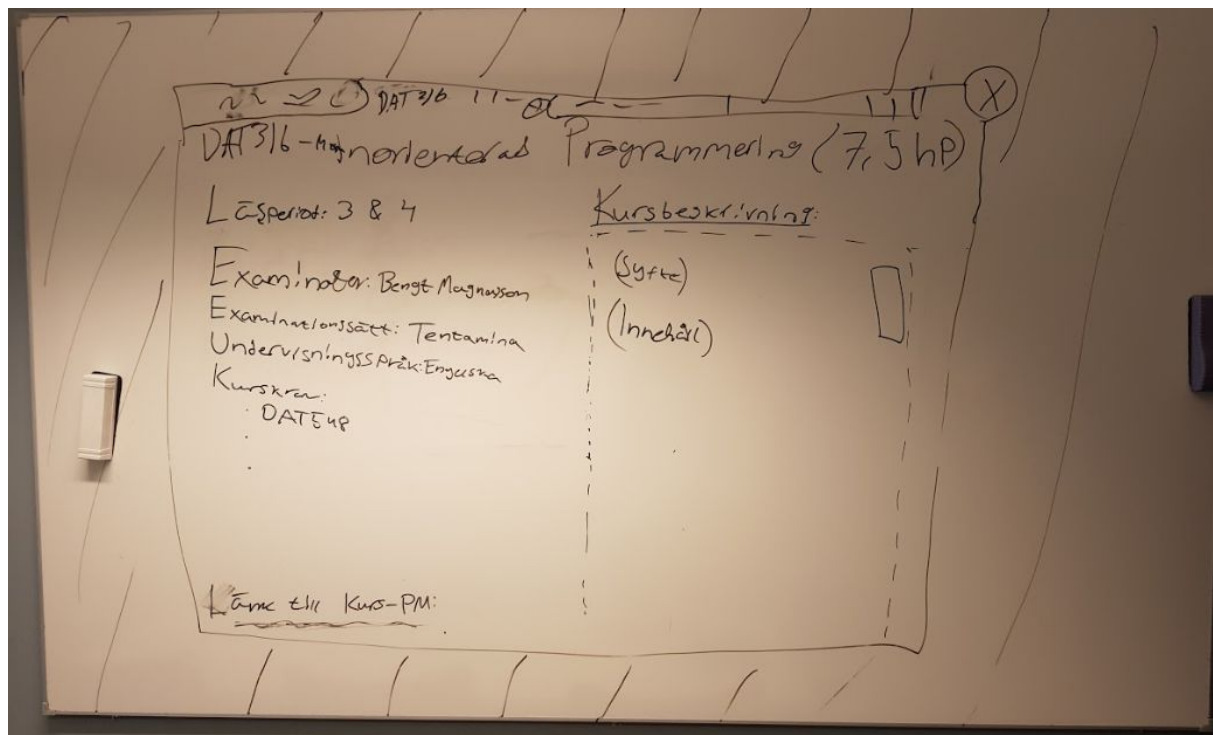 DAT316
X
DAT316 - norienterad Programmering (7,5 hp)
Läsperiod: 3 & 4
Examinator: Bengt Magnusson
Examinationssätt: Tentamina
Undervisningsspråk: Engelska
Kurskrav:
DAT548
Länk till Kurs-PM:
Kursbeskrivning:
(Syfte)
(Innehåll)